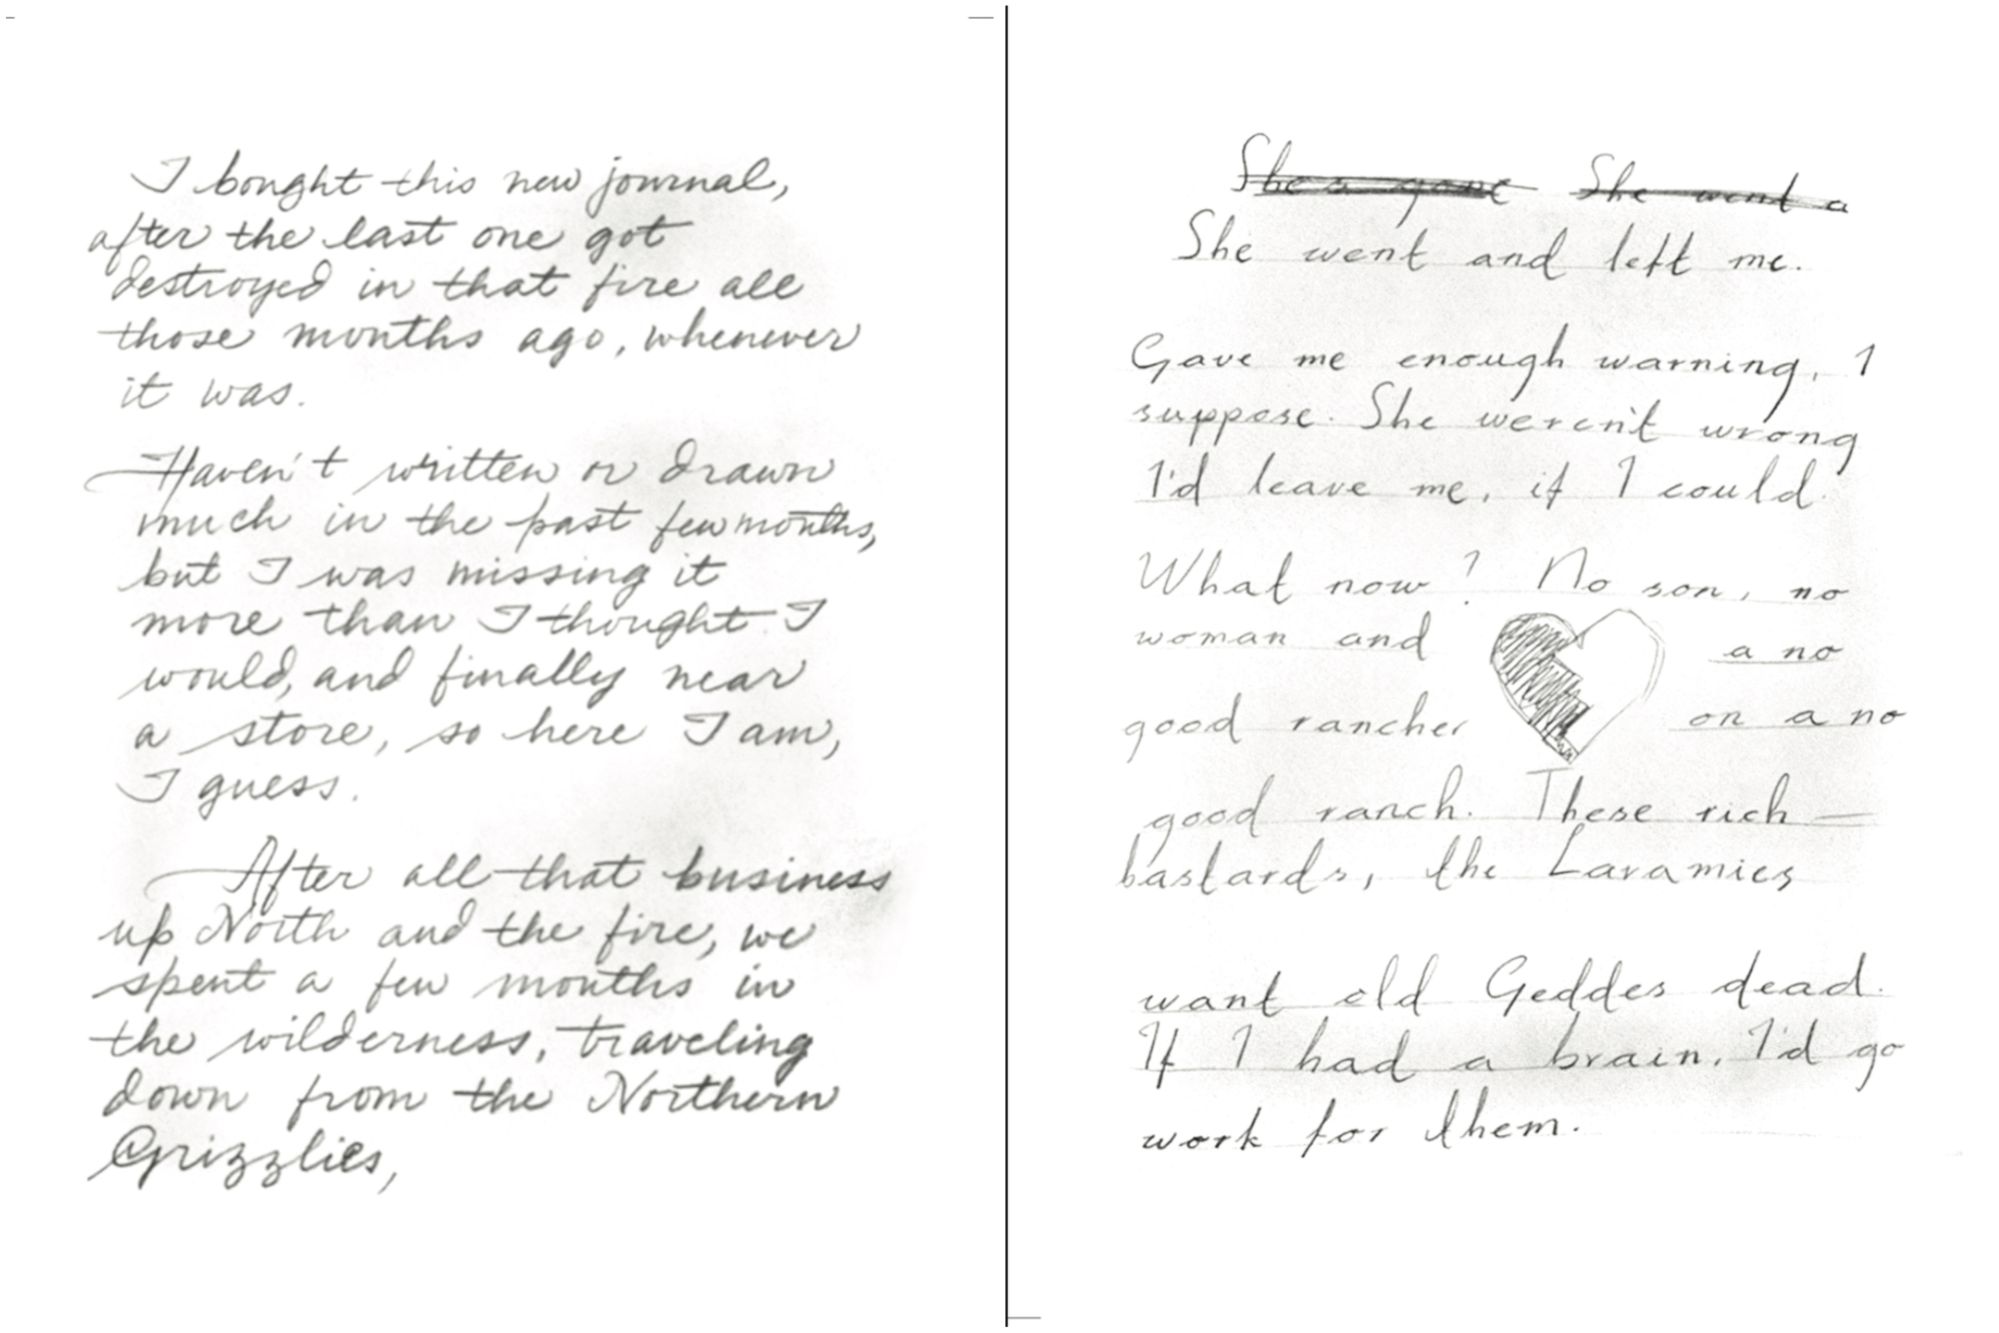 I bought this new journal,
after the last one got
destroyed in that fire all
those months ago, whenever
it was.
Haven't written or drawn
much in the past few months,
but I was missing it
more than I thought I
would, and finally near
a store, so here I am,
I guess.
After all that business
up North and the fire, we
spent a few months in
the wilderness, traveling
down from the Northern
Grizzlies,
She's gone She went a
She went and left me.
Gave me enough warning, I
suppose. She weren't wrong
I'd leave me, if I could.
What now? No son, no
woman and a no
good rancher on a no
good ranch. These rich
bastards, the Laramies
want old Geddes dead.
If I had a brain, I'd go
work for them.